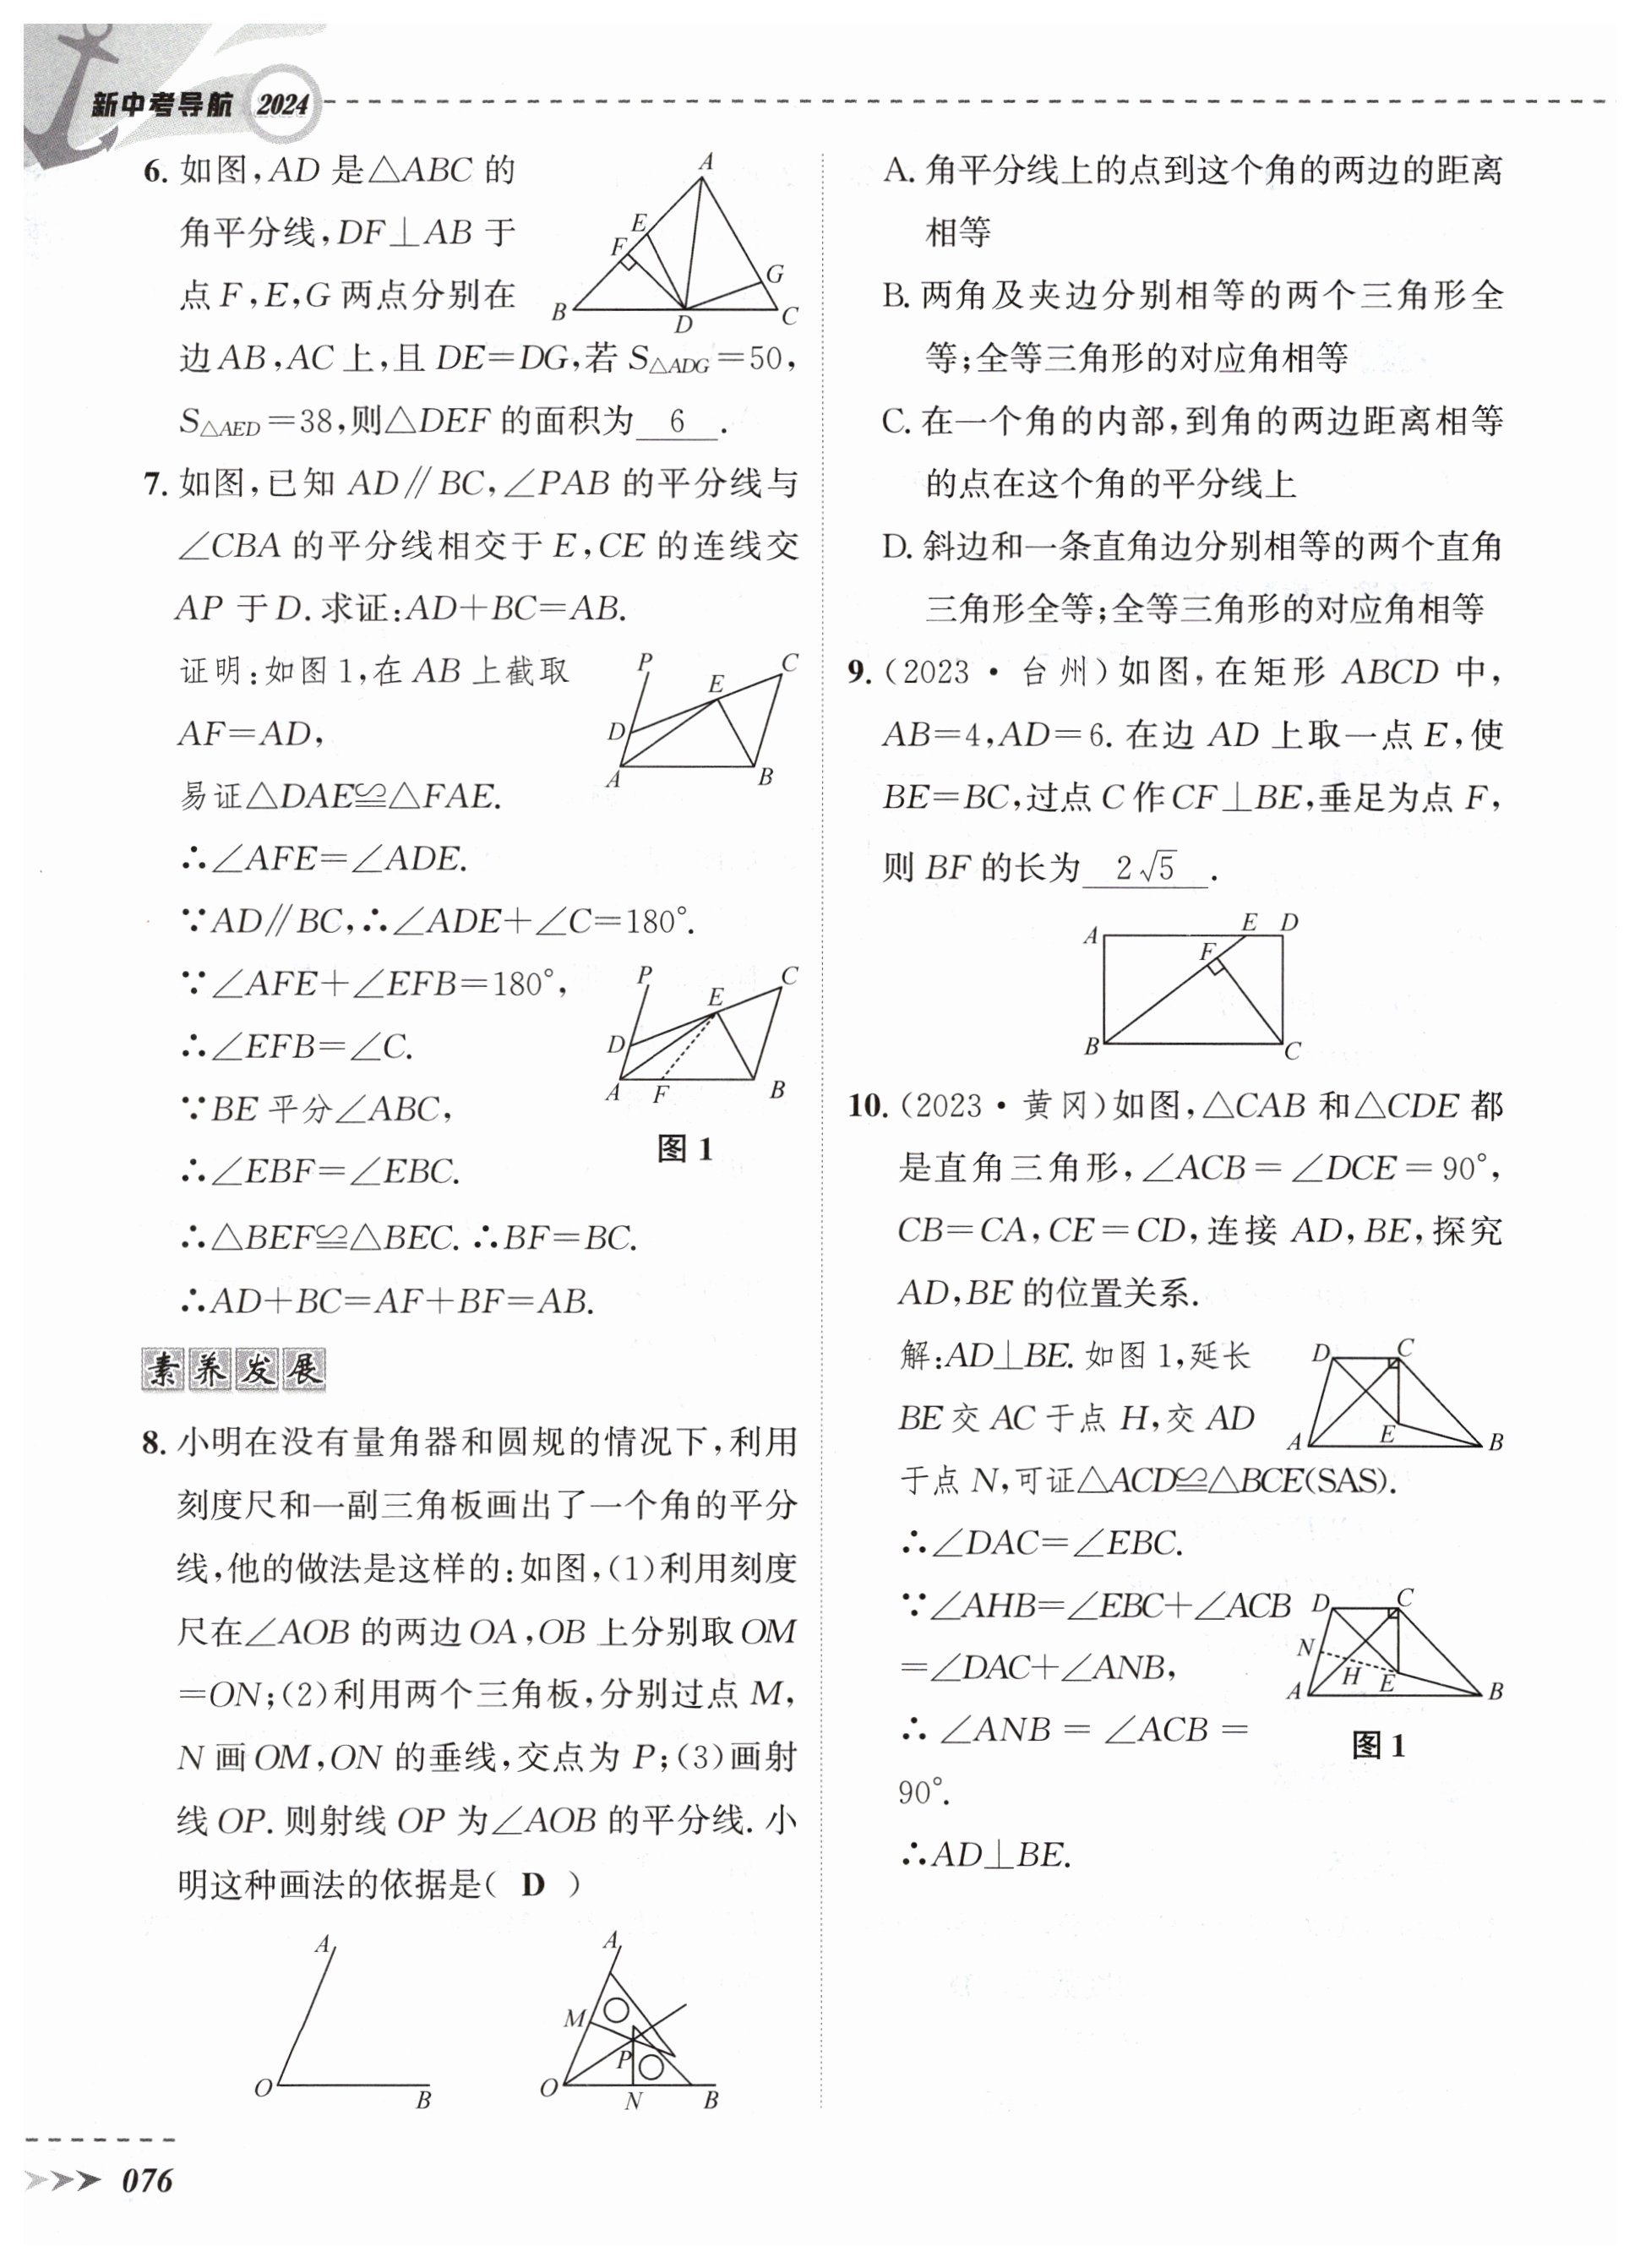 新中考导航 2024
6. 如图,AD 是△ABC 的
角平分线,DF⊥AB 于
点 F,E,G 两点分别在
边 AB,AC 上,且 DE=DG,若 S△ADG=50,
S△AED=38,则△DEF 的面积为 6 .
A
E
F
G
B
D
C
7. 如图,已知 AD∥BC,∠PAB 的平分线与
∠CBA 的平分线相交于 E,CE 的连线交
AP 于 D. 求证:AD+BC=AB.
证明:如图 1,在 AB 上截取
AF=AD,
易证△DAE≌△FAE.
∴∠AFE=∠ADE.
∵AD∥BC,∴∠ADE+∠C=180°.
∵∠AFE+∠EFB=180°,
∴∠EFB=∠C.
∵BE 平分∠ABC,
∴∠EBF=∠EBC.
∴△BEF≌△BEC. ∴BF=BC.
∴AD+BC=AF+BF=AB.
P
C
E
D
A
B
P
C
E
D
A
F
B
图 1
素养发展
8. 小明在没有量角器和圆规的情况下,利用
刻度尺和一副三角板画出了一个角的平分
线,他的做法是这样的:如图,(1)利用刻度
尺在∠AOB 的两边 OA,OB 上分别取 OM
=ON;(2)利用两个三角板,分别过点 M,
N 画 OM,ON 的垂线,交点为 P;(3)画射
线 OP. 则射线 OP 为∠AOB 的平分线. 小
明这种画法的依据是( D )
A
O
B
A
M
P
O
N
B
A. 角平分线上的点到这个角的两边的距离
相等
B. 两角及夹边分别相等的两个三角形全
等;全等三角形的对应角相等
C. 在一个角的内部,到角的两边距离相等
的点在这个角的平分线上
D. 斜边和一条直角边分别相等的两个直角
三角形全等;全等三角形的对应角相等
9. (2023·台州)如图,在矩形 ABCD 中,
AB=4,AD=6. 在边 AD 上取一点 E,使
BE=BC,过点 C 作 CF⊥BE,垂足为点 F,
则 BF 的长为 2√5 .
A
E
D
F
B
C
10. (2023·黄冈)如图,△CAB 和△CDE 都
是直角三角形,∠ACB=∠DCE=90°,
CB=CA,CE=CD,连接 AD,BE,探究
AD,BE 的位置关系.
解:AD⊥BE. 如图 1,延长
BE 交 AC 于点 H,交 AD
于点 N,可证△ACD≌△BCE(SAS).
∴∠DAC=∠EBC.
∵∠AHB=∠EBC+∠ACB
=∠DAC+∠ANB,
∴∠ANB=∠ACB=
90°.
∴AD⊥BE.
D
C
E
A
B
D
C
N
H
E
A
B
图 1
076